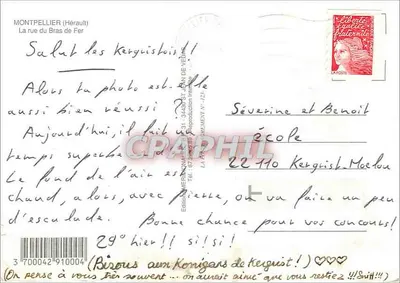 MONTPELLIER (Hérault)
La rue du Bras de Fer
Salut les Kergristois!!
Alors ta photo est-elle
aussi bien réussi ?
Aujourd'hui, il fait un
temps superbe
Le fond de l'air est
chaud, alors, avec Pierre, on va faire un peu
d'escalade. Bonne chance pour vos concours!
29° hier!! si! si!
(Bisous aux Konigans de Kergrist!) ♡♡♡
(On pense à vous très souvent... on aurait aimé que vous restiez !!! Snif!!)
Séverine et Benoit
ÉCOLE
22110 Kergrist-Moëlou
Liberté
égalité
fraternité
LA POSTE
CPARAMA
3 700042 910004